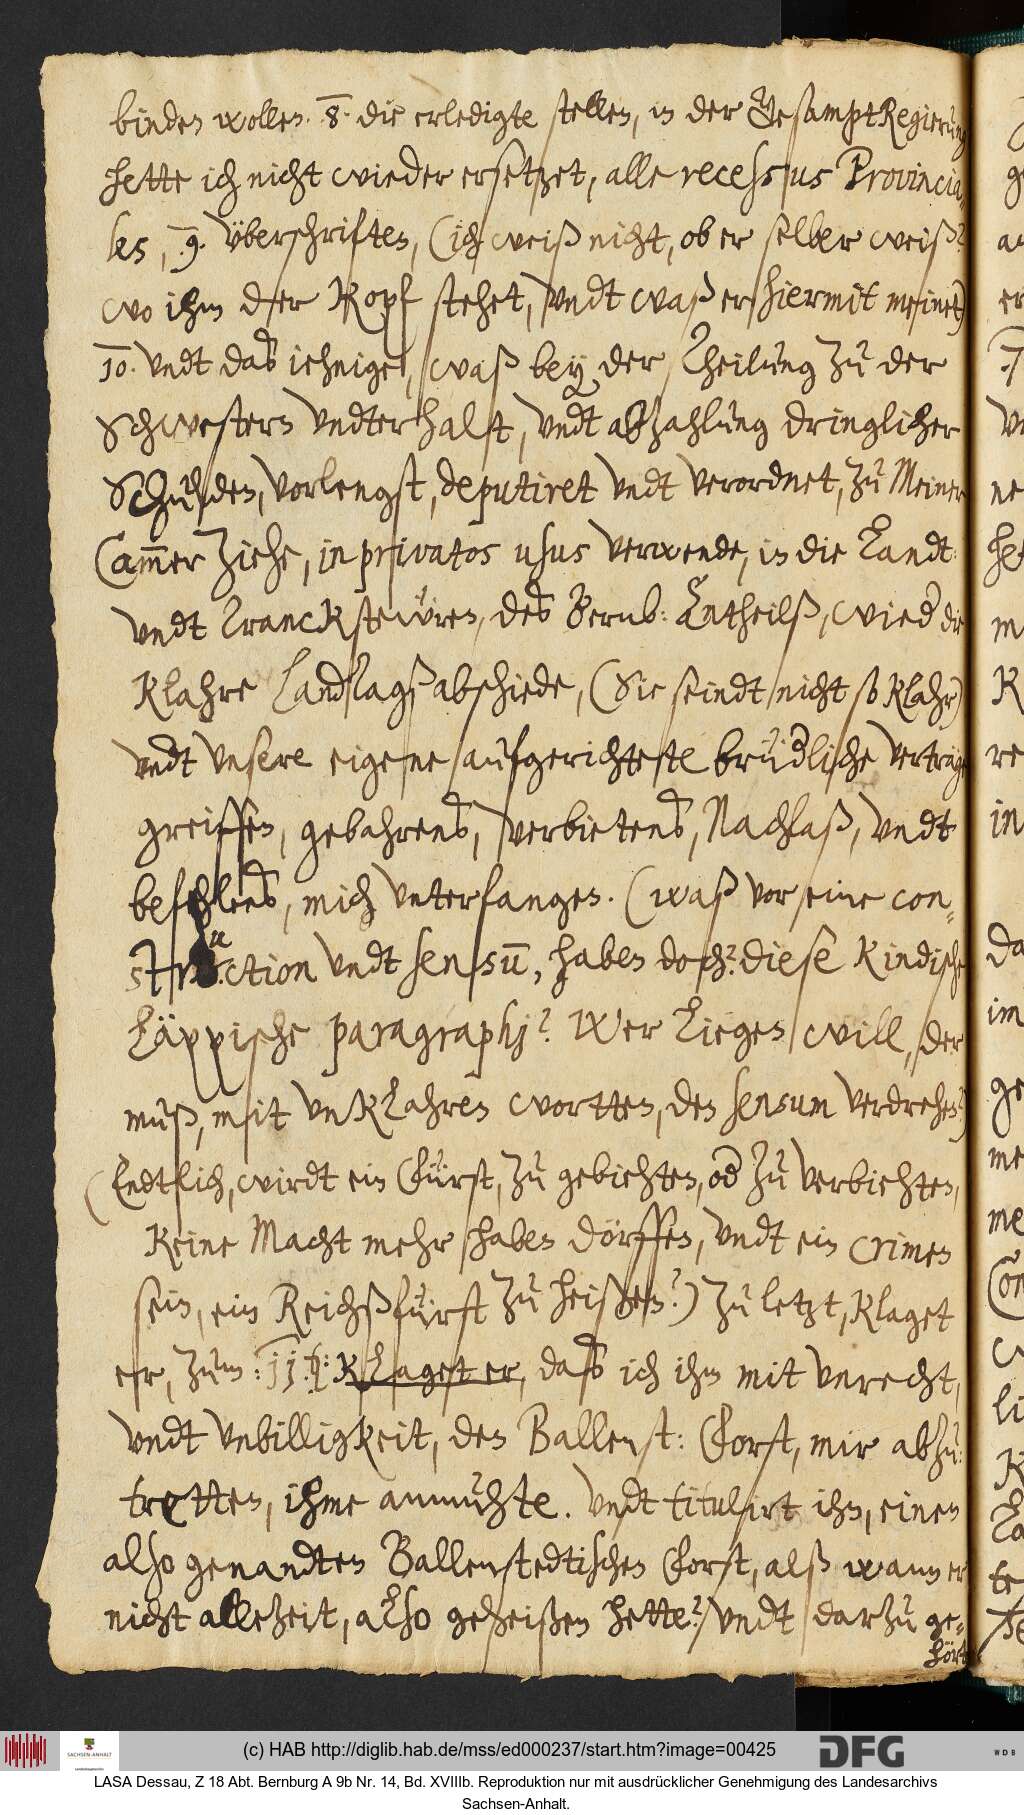 binden wollen. 8. die erledigte stellen, in der GesamptRegierung
hette ich nicht wieder ersetzet, alle recessus Provincia-
les, 9. überschritten, (ich weiß nicht, ob er selber weiß?
wo ihm der Kopf stehet, vndt waß er hiermit meinet)
10. vndt das iehnige, waß bey der Theilung zu der
Schwestern vndterhalt, vndt abzahlung dringlicher
Schulden, vorlengst, deputiret vndt verordnet, zu Meiner
Cam̄er Ziehe, in privatos usus verwende, in die Landt-
vndt Tranckstewren, des Bernb: Antheilß, wied die
Klahre Landtagsabschiede, (Sie seindt nicht so Klahr)
vndt Vnsere eigene aufgerichteste brüdliche verträge
greiffen, gebahrens, verbietens, Nachlaß, vndt
befehlens, mich vnterfangen. (waß vor eine con-
struction vndt sensū, haben doch? diese Kindische
Läppische paragraphj? Wer Liegen will, der
muß, mit vnKLahren wortten, den sensum verdrehen?)
(Endtlich, wirdt ein Fürst, zu gebiehten, od zu verbiehten,
Keine Macht mehr haben dörffen, vndt ein Crimen
sein, ein Reichßfürst zu heißen?) Zu letzt, Klaget
er, zum: 11. KLaget er, daß ich ihm mit vnrecht,
vndt vnbilligkeit, den Ballenst: Forst, mir abzu-
tretten, ihme anmuhte. Vndt titulirt ihn, einen
also genandten Ballenstedtischen Forst, alß wann er
nicht allezeit, aLso geheißen hette? vndt darzu ge-
hört
(c) HAB http://diglib.hab.de/mss/ed000237/start.htm?image=00425
DFG
WDB
SACHSEN-ANHALT
LASA Dessau, Z 18 Abt. Bernburg A 9b Nr. 14, Bd. XVIIIb. Reproduktion nur mit ausdrücklicher Genehmigung des Landesarchivs
Sachsen-Anhalt.